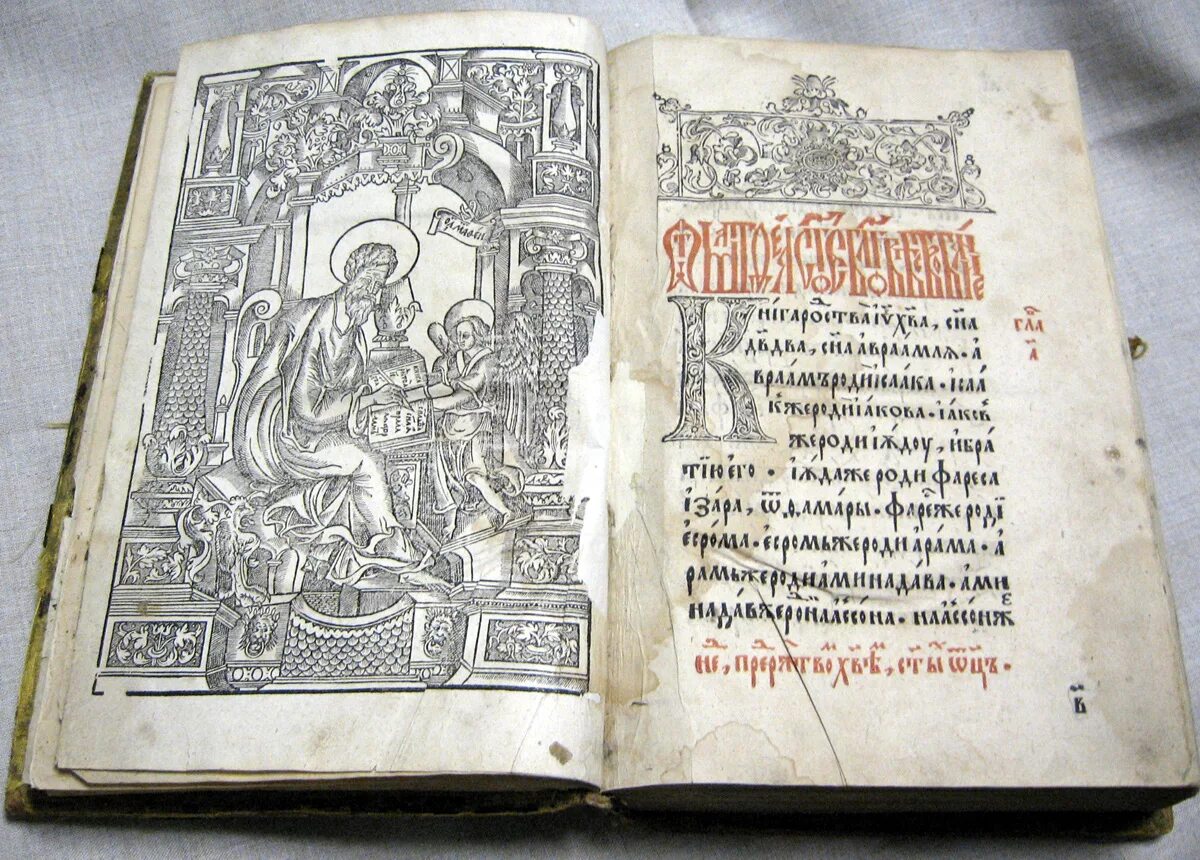 Ѿ МАТѲЕѦ СТОЕ БЛГОВѢСТВОВАНІЕ
Кни́га рⷭ҇тва і҆у҃ хв҃а, сн҃а
дв҃два, сн҃а авраа́млѧ · а
враа́мъ родѝ і҆саа́ка · і҆саа́
къже родѝ і҆а́кова · і҆а́ковъ
же родѝ і҆ѫ́доу, и҆ бра́
тїю є҆го̀ · і҆ѫ́да же родѝ фаре́са
і҆ за́ра, ѿ ѳ҆ама́ры · фаре́съже родѝ
є҆сро́ма · є҆сро́мъже родѝ а҆ра́ма · а
ра́мъже родѝ а҆минада́ва · а҆ми
нада́въже родѝ наассо́на · наассо́нже
гла
а҃
не, пре рⷤтво́ хв҃ѣ, ст҃ы ѻ҆ц҃ъ ·
в҃